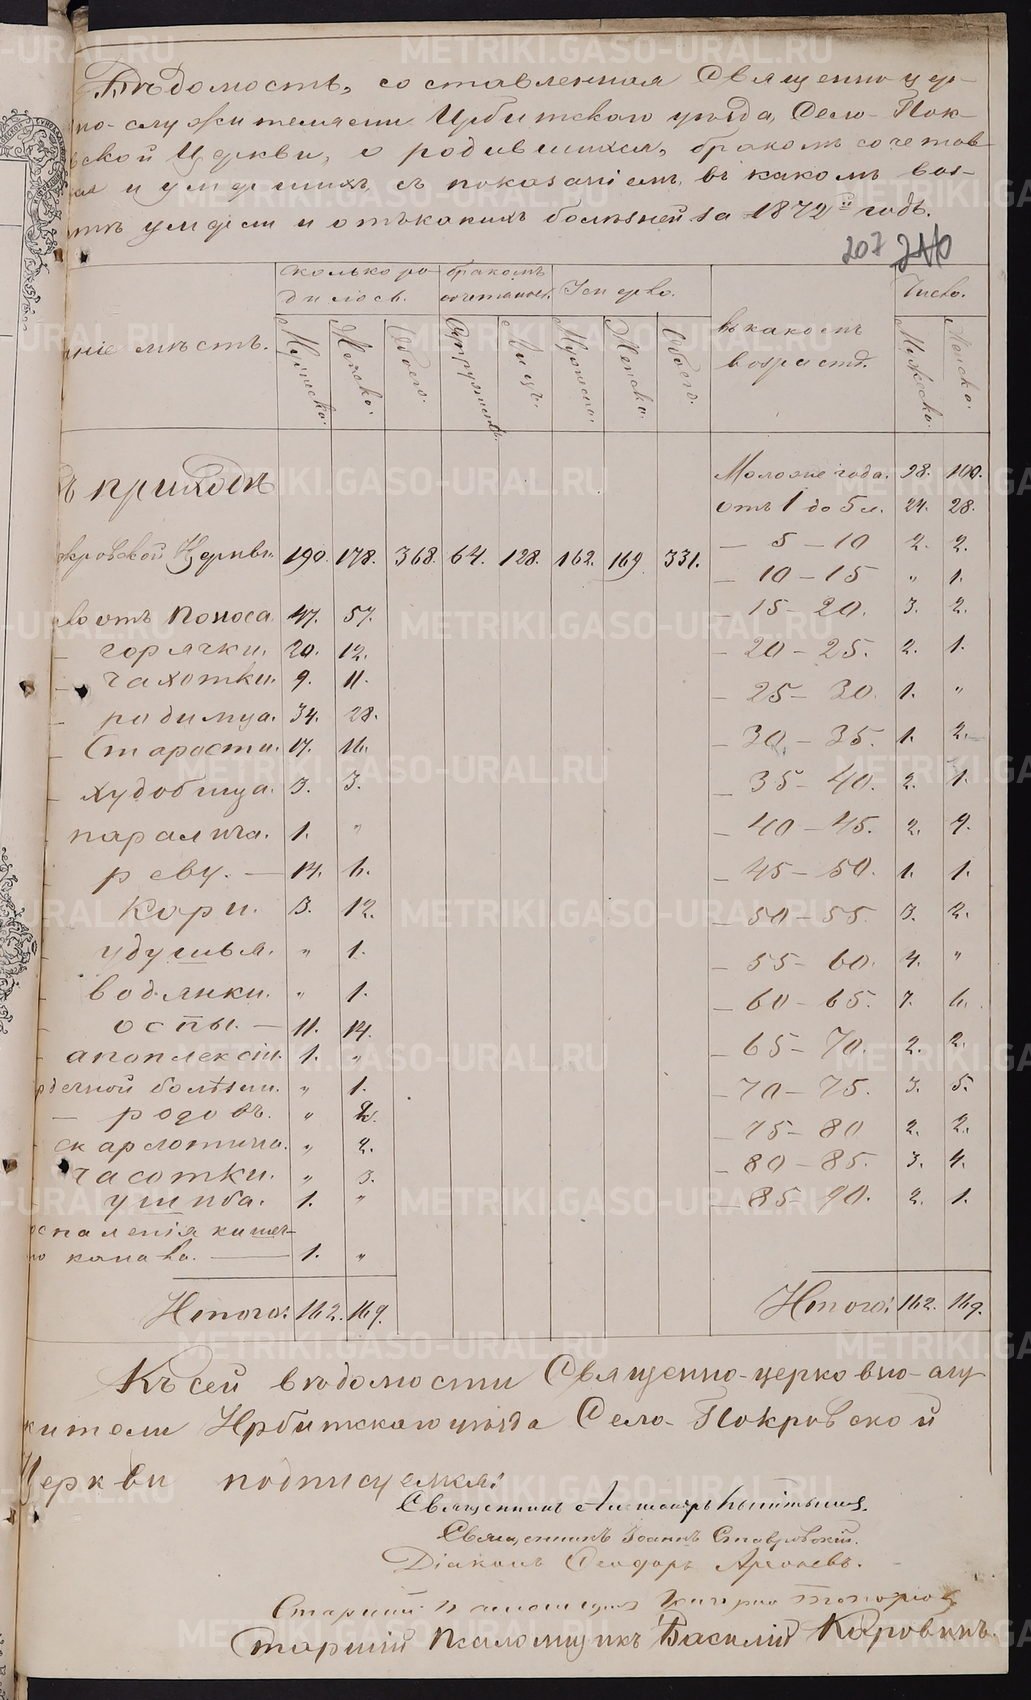 Вѣдомость, составленная Священно-цер-
но-служителями Ирбитскаго уѣзда, Село-Пок-
вской Церкви, о родившихся, бракомъ сочетав-
и умершихъ съ показаніемъ, въ какомъ воз-
умерли и отъ какихъ болѣзней за 1872й годъ.
207
сколько ро- бракомъ Число.
дилось. сочеталось. Умерло.
ніе мѣстъ. Мужеска. Женска. Обоего. Супружествъ. Лицъ. Мужеска. Женска. Обоего. въ какомъ возрастѣ. Мужеска. Женска.
ъ приходѣ Моложе года. 98. 100.
отъ 1 до 5 л. 24. 28.
кровской Церкви. 190. 178. 368. 64. 128. 162. 169 331. — 5 — 10 2. 2.
— 10 — 15 „ 1.
отъ поноса. 47. 57. — 15 — 20. 3. 2.
— горячки. 20. 12. — 20 — 25. 2. 1.
— чахотки. 9. 11. — 25 — 30. 1. „
— родимца. 34. 28. — 30. — 35. 1. 2.
— Старости. 17. 16. — 35 — 40. 2. 1.
— худобища. 3. 3. — 40 — 45. 2. 9.
паралича. 1. „ — 45 — 50. 1. 1.
реву. — 14. 6. — 50 — 55. 3. 2.
Кори. 3. 12. — 55 — 60. 4. „
удушья. „ 1. — 60 — 65. 7. 6.
водянки. „ 1. — 65 — 70. 2. 2.
оспы. — 11. 14. — 70 — 75. 3. 5.
апоплексіи. 1. „ — 75 — 80 2. 2.
рдечной болѣзни. „ 1. — 80 — 85. 3. 4.
— родовъ. „ 2. — 85 — 90. 2. 1.
скарлотина. „ 2.
часотки. „ 3.
ушиба. 1. „
паленія кишеч-
канала. — 1. „
Итого: 162. 169. Итого: 162. 169.
Къ сей вѣдомости Священно-церковно-слу-
жители Ирбитскаго уѣзда Село-Покровской
Церкви подписуемся:
Священникъ Александръ
Священникъ Іоаннъ Ставровскій.
Діаконъ Ѳеодоръ
Старшій
Старшій Псаломщикъ Василій Коровинъ.
METRIKI.GASO-URAL.RU